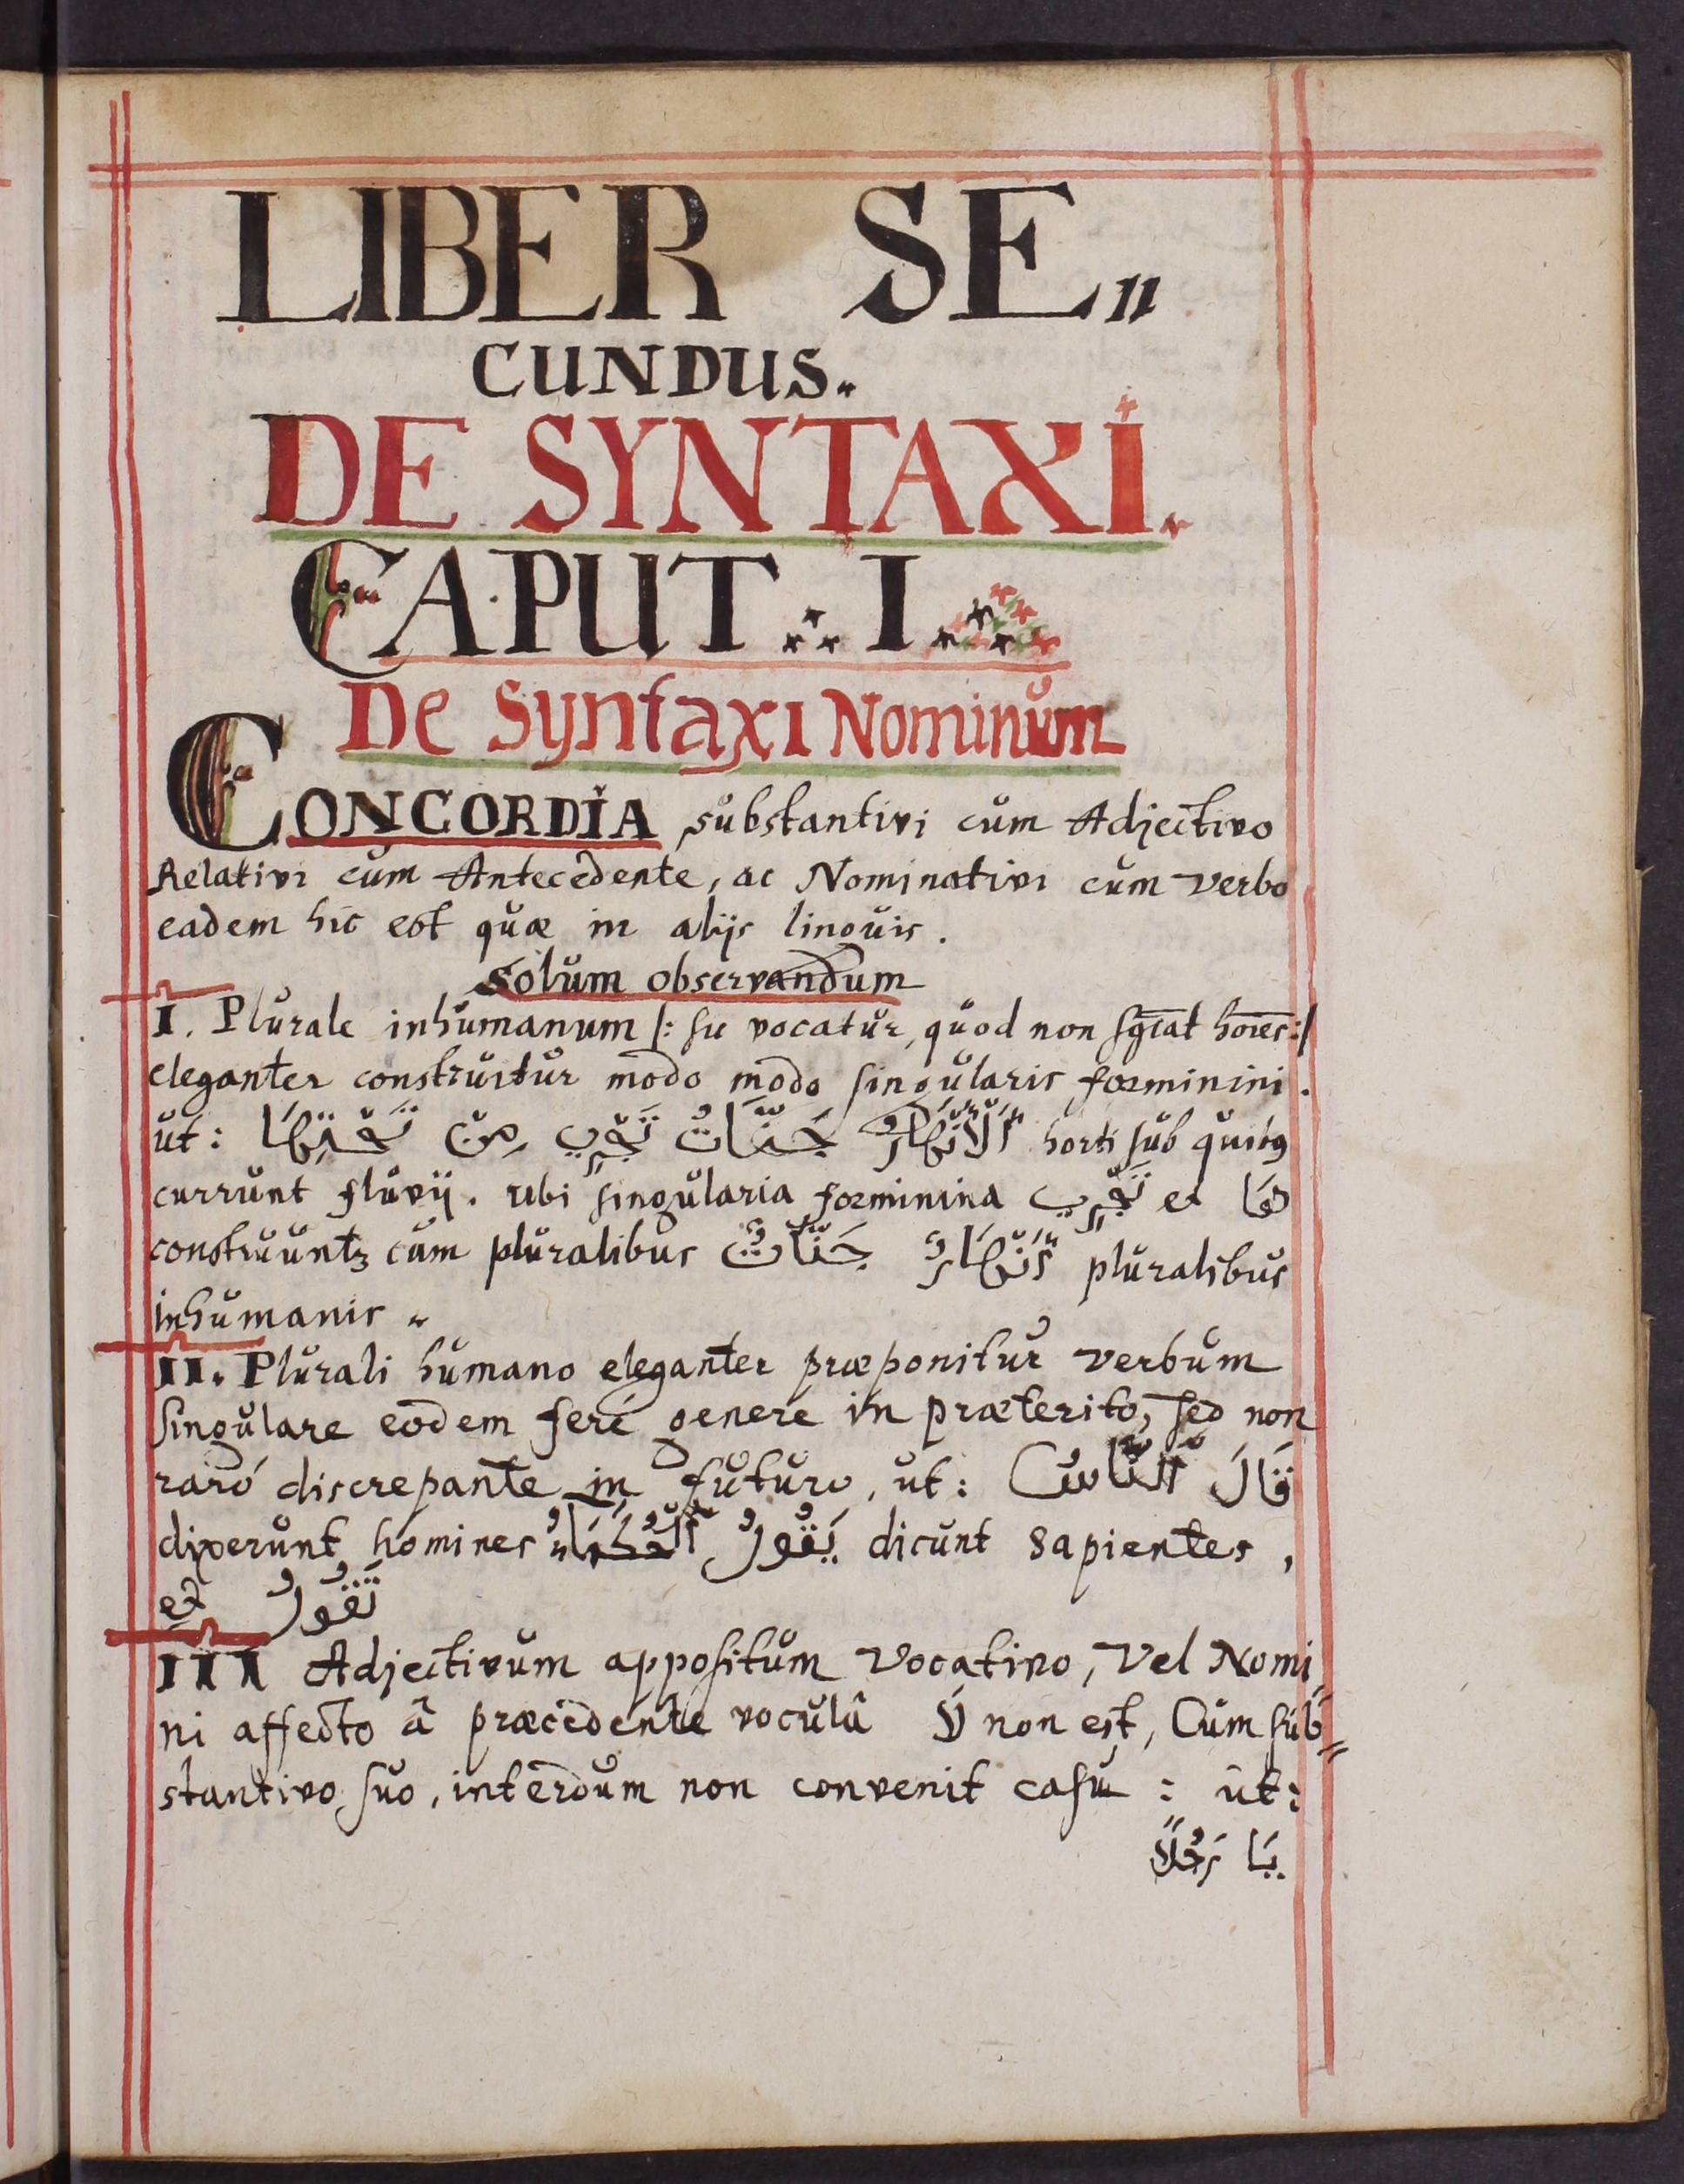 LIBER SE„
CUNDUS.
DE SYNTAXI.
CAPUT ∴ I.
De Syntaxi Nominum
CONCORDIA substantivi cum Adjectivo
Relativi cum Antecedente, ac Nominativi cum verbo
eadem hic est quæ in alijs linguis.
Solum observandum
I. Plurale inhumanum /: su vocatur, quod non sgcat hoies :/
eleganter construitur modo modo singularis forminini.
ut: جَنَّاتٌ تَجْرِي مِنْ تَحْتِهَا اَلْأَنْهَارُ horti sub quibus
currunt fluvij. ubi singularia forminina تَجْرِي et هَا
construuntur cum pluralibus جَنَّاتٌ أَنْهَارٌ pluralibus
inhumanis.
II. Plurali humano eleganter præponitur verbum
singulare eodem feré genere in præterito, sed non
raró discrepante in futuro, ut: قَالَ اَلنَّاسُ
dixerunt homines يَقُولُ اَلْحُكَمَاءُ dicunt sapientes,
et تَقُولُ
III Adjectivum appositum Vocativo, Vel Nomi„
ni affecto â præcedente voculâ لَا non est, Cum sub=
stantivo suo, interdum non convenit casu: ut:
يَا رَجُلًا